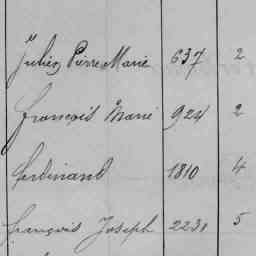 Julien Pierre Marie 637 2
François Marie 924 2
Ferdinand 1810 4
François Joseph 2231 5